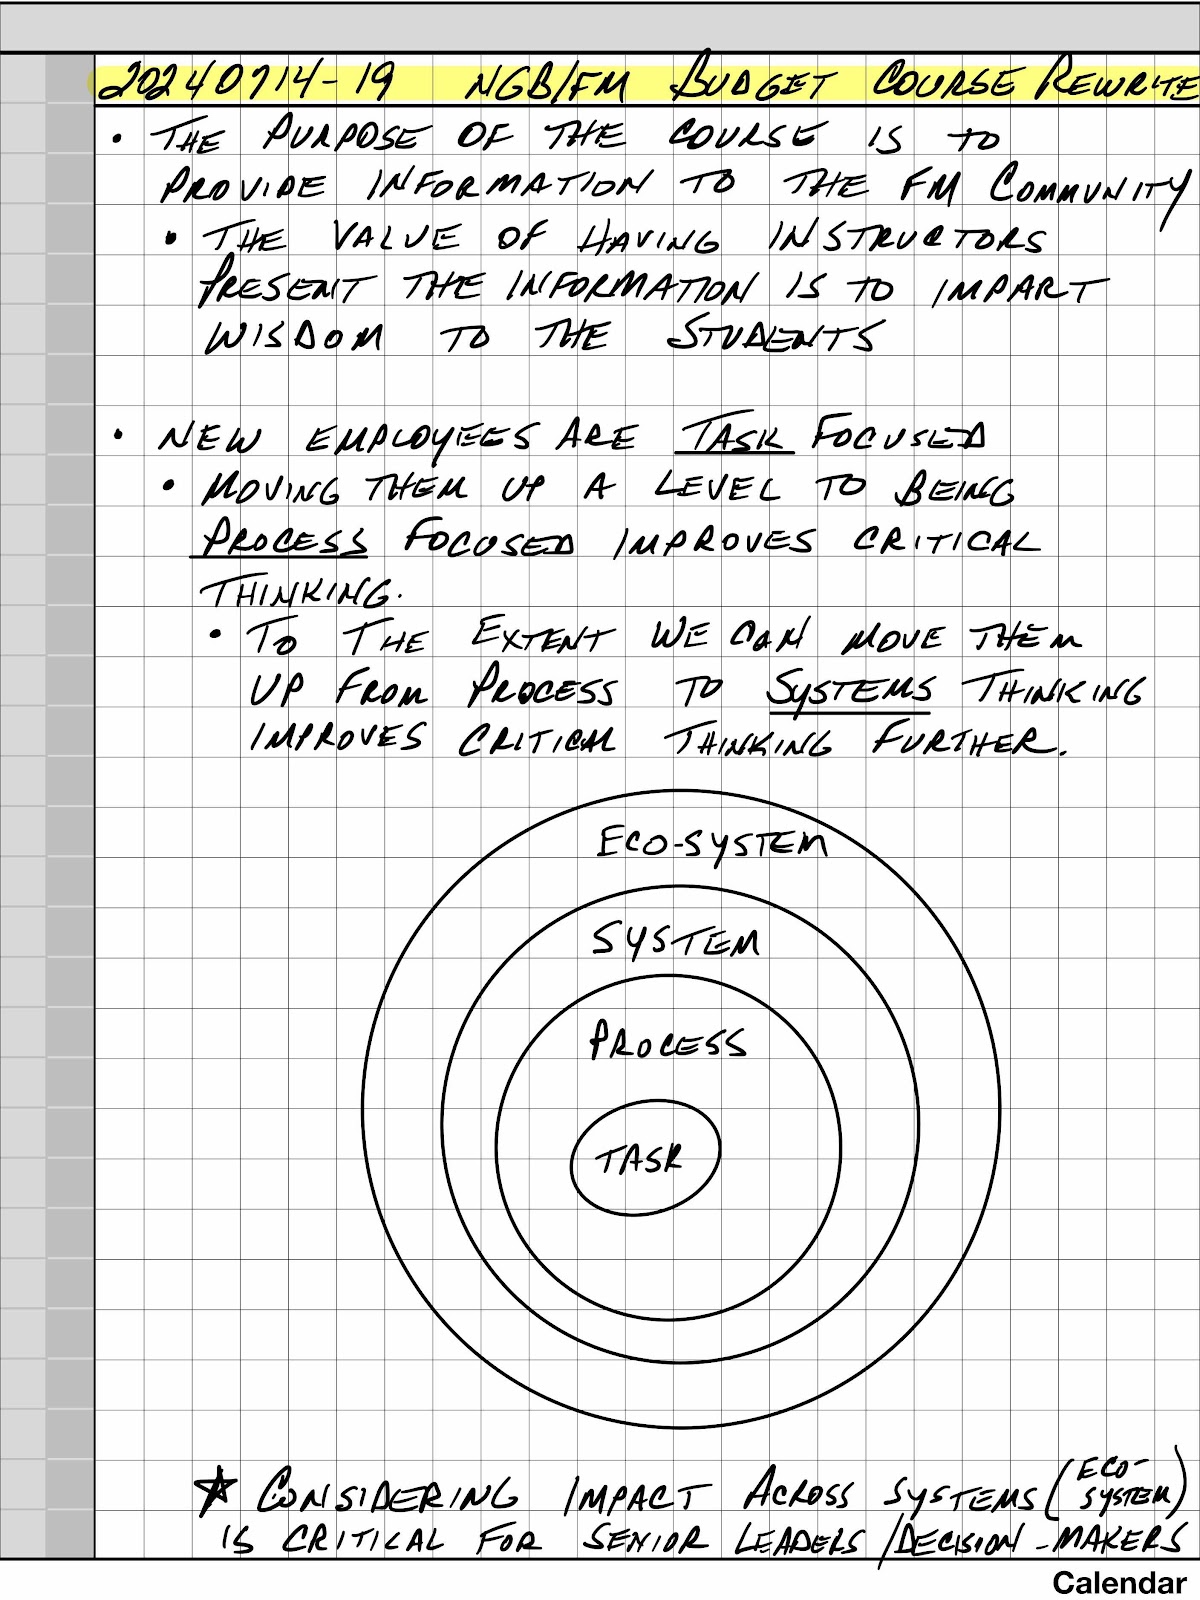 20240714-19 NGB/FM BUDGET COURSE REWRITE
• THE PURPOSE OF THE COURSE IS TO
PROVIDE INFORMATION TO THE FM COMMUNITY
• THE VALUE OF HAVING INSTRUCTORS
PRESENT THE INFORMATION IS TO IMPART
WISDOM TO THE STUDENTS
• NEW EMPLOYEES ARE TASK FOCUSED
• MOVING THEM UP A LEVEL TO BEING
PROCESS FOCUSED IMPROVES CRITICAL
THINKING.
• TO THE EXTENT WE CAN MOVE THEM
UP FROM PROCESS TO SYSTEMS THINKING
IMPROVES CRITICAL THINKING FURTHER.
ECO-SYSTEM
SYSTEM
PROCESS
TASK
★ CONSIDERING IMPACT ACROSS SYSTEMS (ECO-
SYSTEM)
IS CRITICAL FOR SENIOR LEADERS/DECISION-MAKERS
Calendar